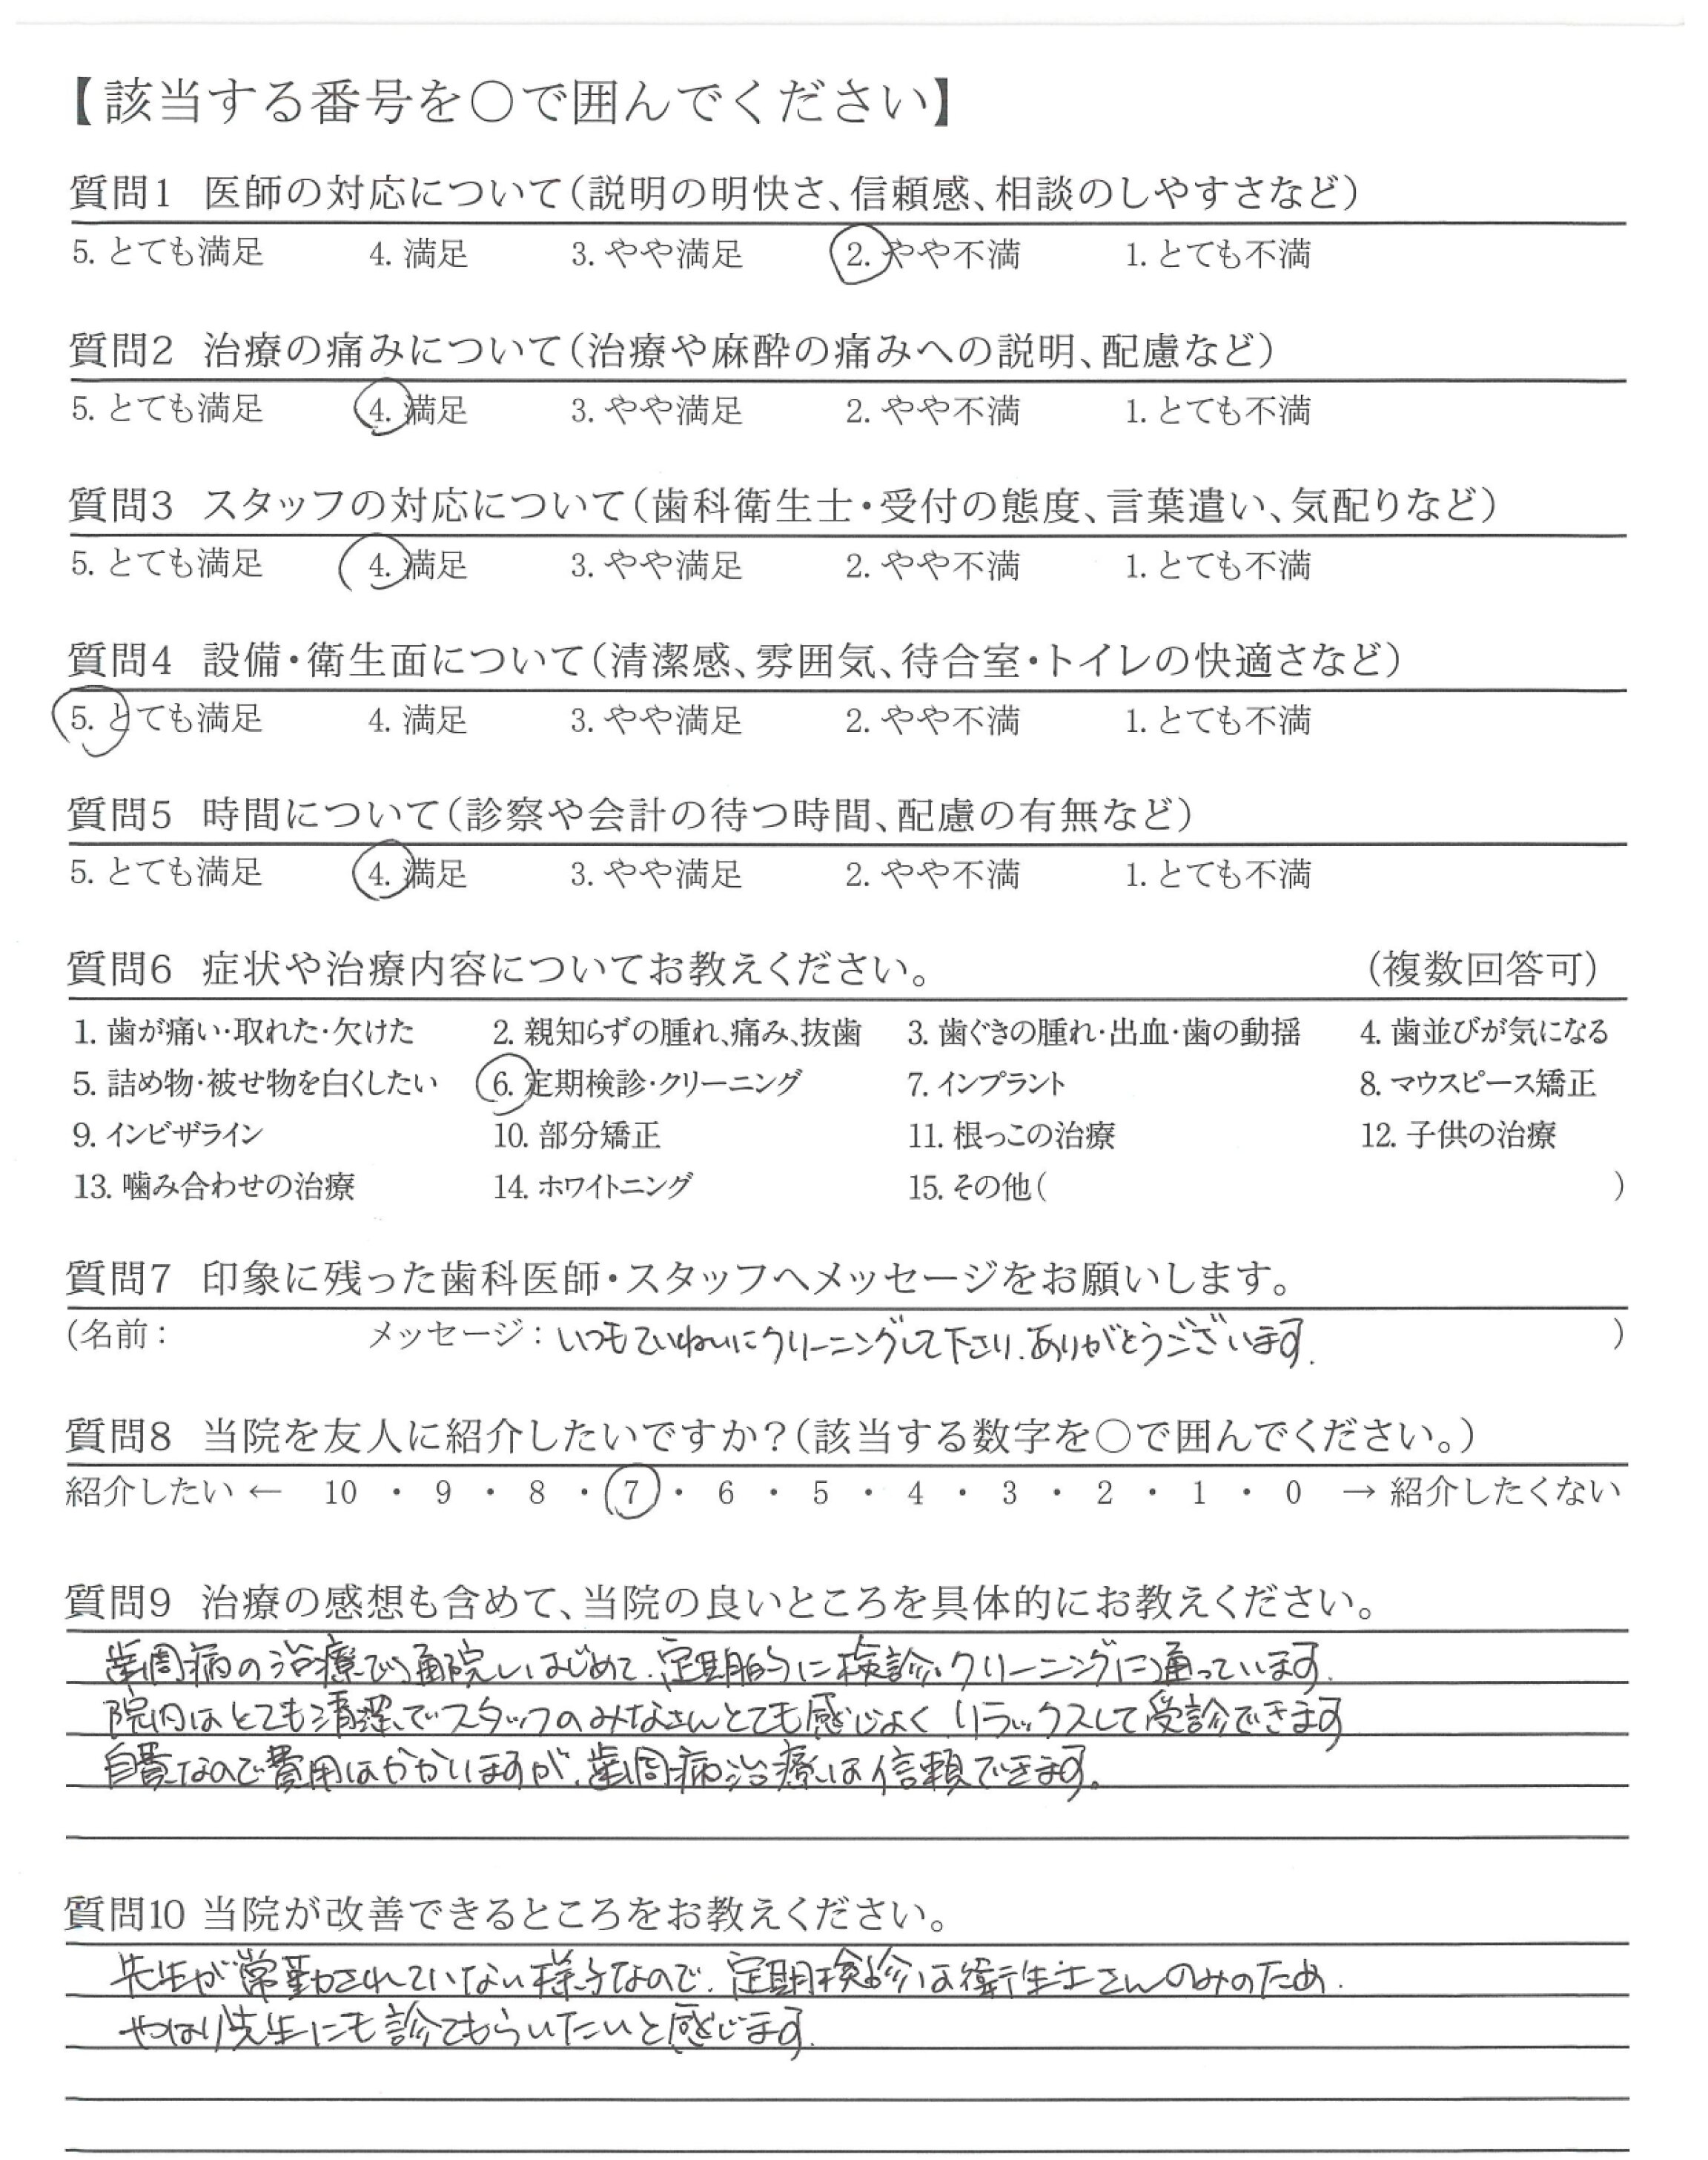 【該当する番号を○で囲んでください】
質問1 医師の対応について(説明の明快さ、信頼感、相談のしやすさなど)
5. とても満足 4. 満足 3. やや満足 2. やや不満 1. とても不満
質問2 治療の痛みについて(治療や麻酔の痛みへの説明、配慮など)
5. とても満足 4. 満足 3. やや満足 2. やや不満 1. とても不満
質問3 スタッフの対応について(歯科衛生士・受付の態度、言葉遣い、気配りなど)
5. とても満足 4. 満足 3. やや満足 2. やや不満 1. とても不満
質問4 設備・衛生面について(清潔感、雰囲気、待合室・トイレの快適さなど)
5. とても満足 4. 満足 3. やや満足 2. やや不満 1. とても不満
質問5 時間について(診察や会計の待つ時間、配慮の有無など)
5. とても満足 4. 満足 3. やや満足 2. やや不満 1. とても不満
質問6 症状や治療内容についてお教えください。 (複数回答可)
1. 歯が痛い・取れた・欠けた 2. 親知らずの腫れ、痛み、抜歯 3. 歯ぐきの腫れ・出血・歯の動揺 4. 歯並びが気になる
5. 詰め物・被せ物を白くしたい 6. 定期検診・クリーニング 7. インプラント 8. マウスピース矯正
9. インビザライン 10. 部分矯正 11. 根っこの治療 12. 子供の治療
13. 噛み合わせの治療 14. ホワイトニング 15. その他( )
質問7 印象に残った歯科医師・スタッフへメッセージをお願いします。
(名前: メッセージ: いつもていねいにクリーニングして下さり、ありがとうございます。 )
質問8 当院を友人に紹介したいですか?(該当する数字を○で囲んでください。)
紹介したい ← 10 ・ 9 ・ 8 ・ 7 ・ 6 ・ 5 ・ 4 ・ 3 ・ 2 ・ 1 ・ 0 → 紹介したくない
質問9 治療の感想も含めて、当院の良いところを具体的にお教えください。
歯周病の治療で通院しはじめて、定期的に検診、クリーニングに通っています。
院内はとても清潔でスタッフのみなさんとても感じよく リラックスして受診できます
自費なので費用はかかりますが、歯周病治療は信頼できます。
質問10 当院が改善できるところをお教えください。
先生が常勤されていない様子なので、定期検診は衛生士さんのみのため、
やはり先生にも診てもらいたいと感じます。